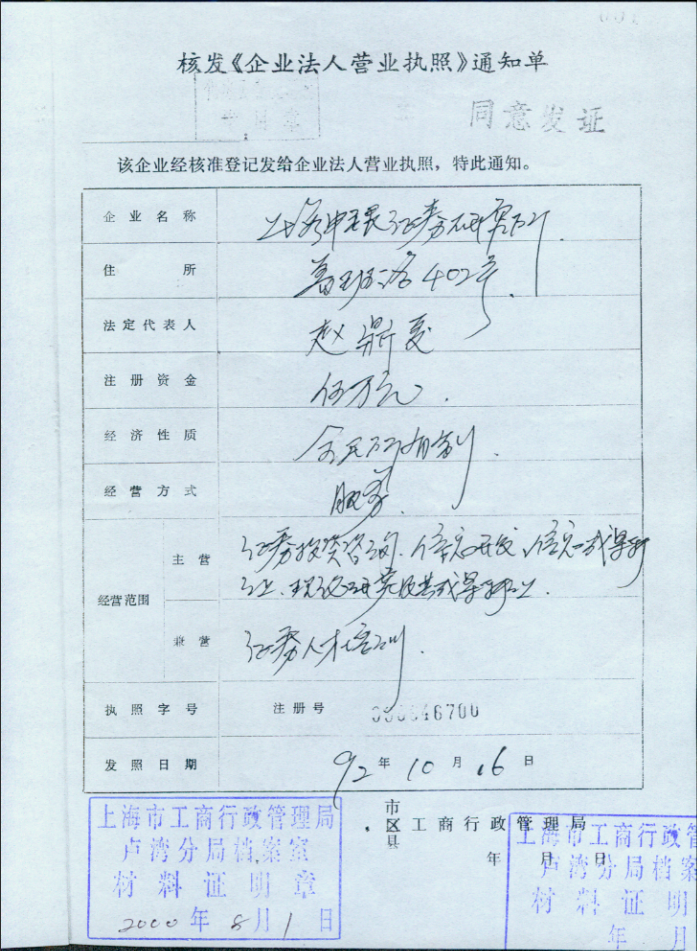 核发《企业法人营业执照》通知单
同意发证
该企业经核准登记发给企业法人营业执照，特此通知。
企业名称 上海申银证券研究所
住所 402号
法定代表人 赵鼎夏
注册资金 伍万元.
经济性质 全民所有制.
经营方式 服务.
经营范围
主营 证券投资咨询、信息开发、信息成果转
让、及其成果转让.
兼营 证券人才培训.
执照字号 注册号 46700
发照日期 92年10月16日
市区县工商行政管理局
年月日
上海市工商行政管理局
卢湾分局档案室
材料证明章
2000年8月1日
上海市工商行政管
卢湾分局档案
材料证明
年月